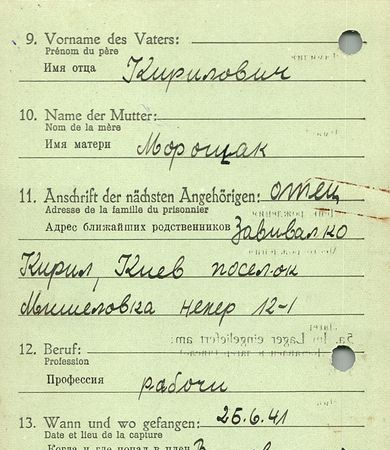 9. Vorname des Vaters:
Prénom du père
Имя отца Кирилович
10. Name der Mutter:
Nom de la mère
Имя матери Морощак
11. Anschrift der nächsten Angehörigen: отец
Adresse de la famille du prisonnier
Адрес ближайших родственников Завивалко
Кирил, Киев поселок
Мишеловка 12-1
12. Beruf:
Profession
Профессия рабочи
13. Wann und wo gefangen: 25.6.41
Date et lieu de la capture
Когда и где попал в плен